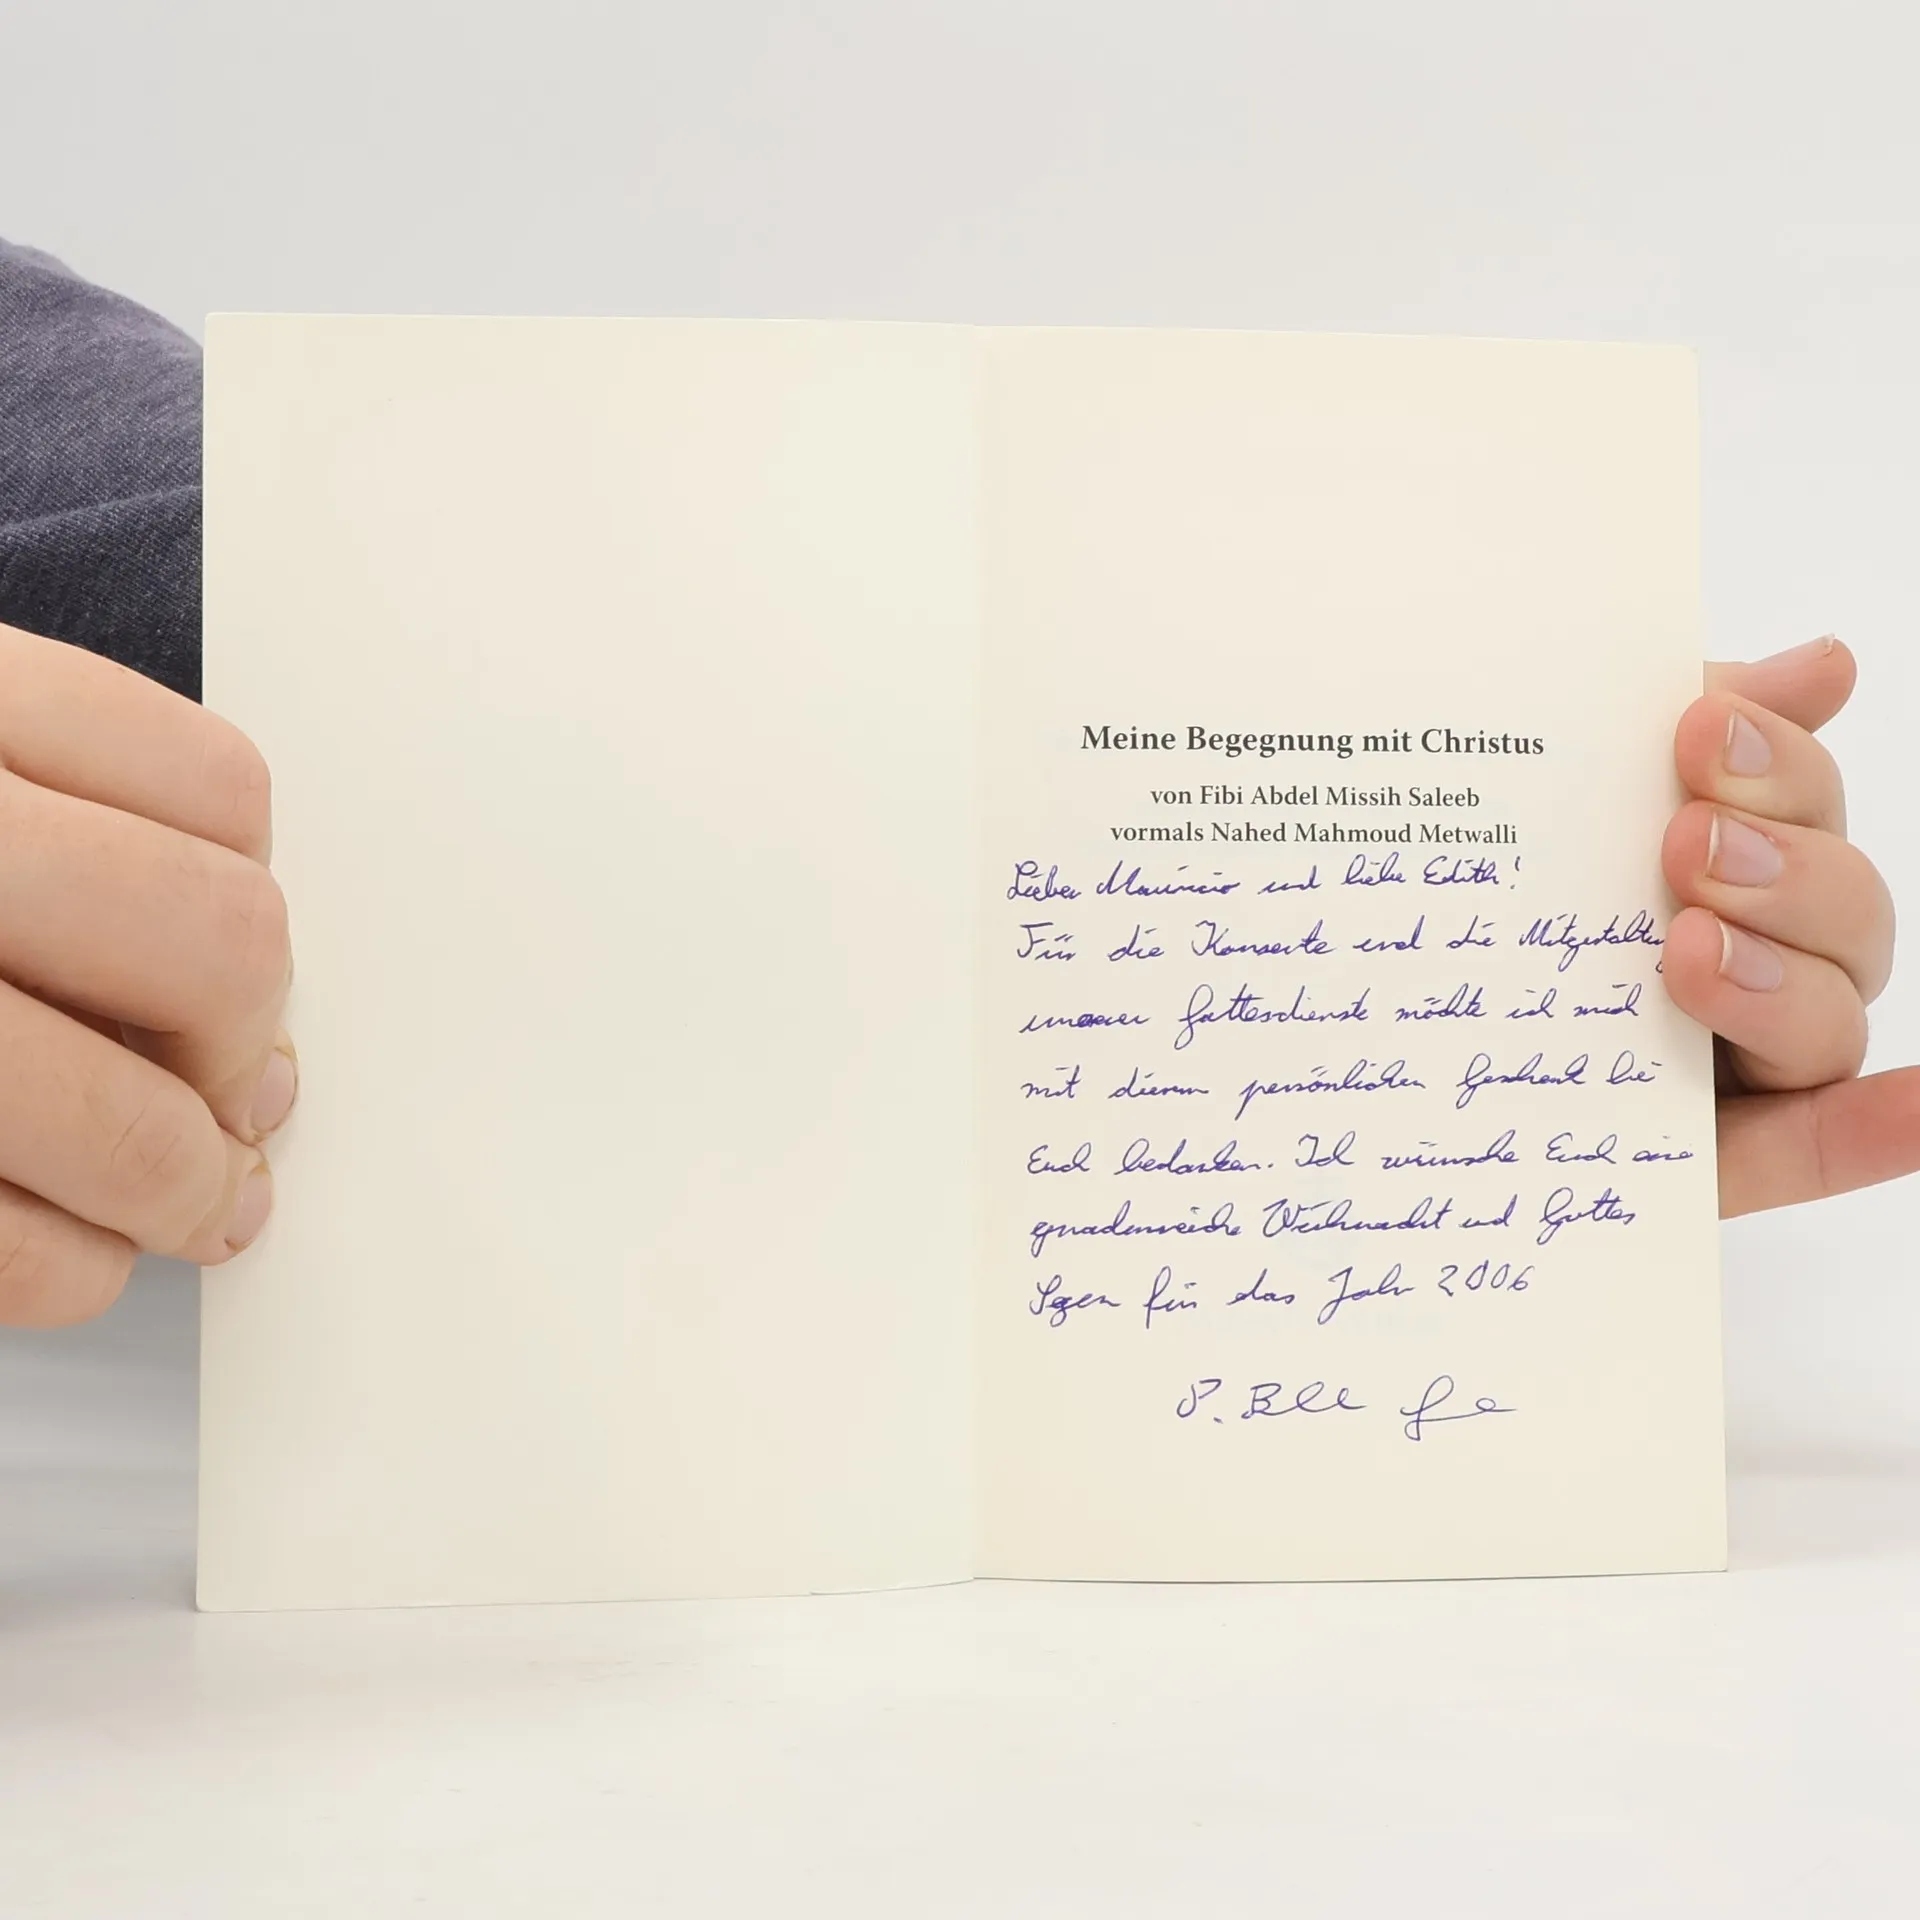 Meine Begegnung mit Christus
von Fibi Abdel Missih Saleeb
vormals Nahed Mahmoud Metwalli
Lieber Mauricio und liebe Edith!
Für die Konzerte und die Mitgestaltung
unserer Gottesdienste möchte ich mich
mit diesem persönlichen Geschenk bei
Euch bedanken. Ich wünsche Euch eine
gnadenreiche Weihnacht und Gottes
Segen für das Jahr 2006
P.